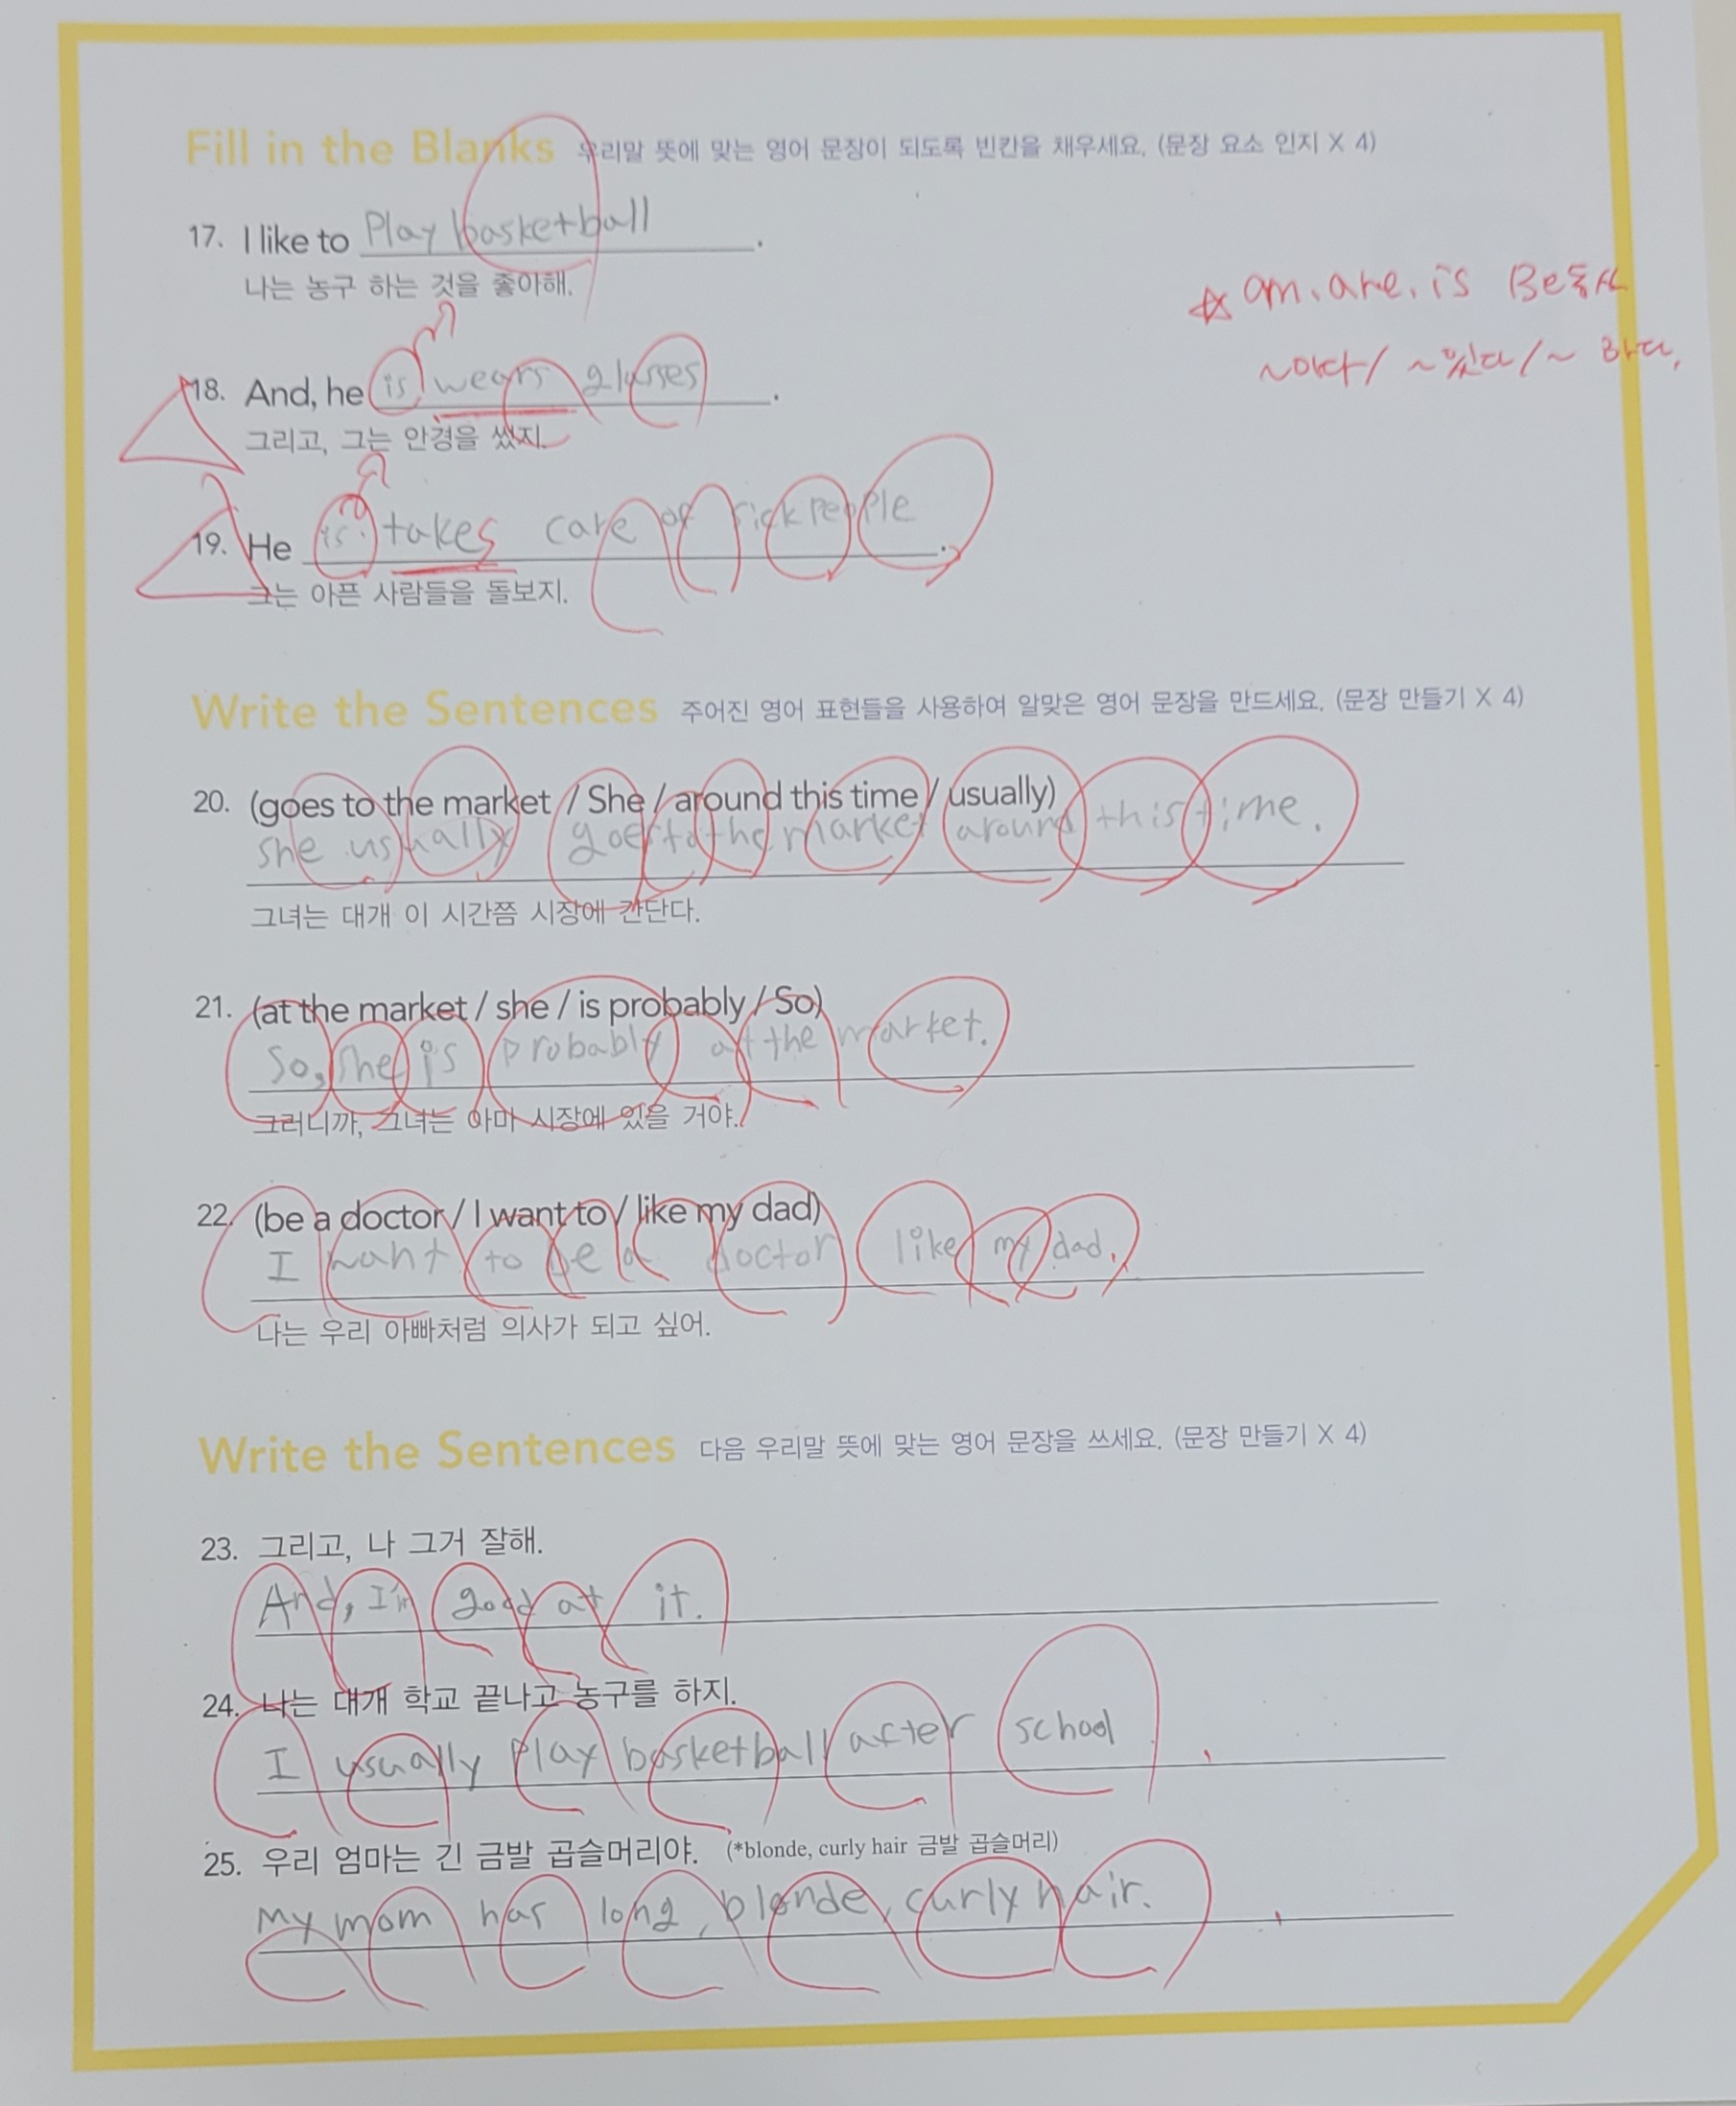 Fill in the Blanks 우리말 뜻에 맞는 영어 문장이 되도록 빈칸을 채우세요. (문장 요소 인지 X 4)
17. I like to Play basketball.
나는 농구 하는 것을 좋아해.
☆ am, are, is Be동사
~이다/ ~있다/~ 하다.
18. And, he is wears glasses.
그리고, 그는 안경을 썼지.
19. He is takes care of sick people.
그는 아픈 사람들을 돌보지.
Write the Sentences 주어진 영어 표현들을 사용하여 알맞은 영어 문장을 만드세요. (문장 만들기 X 4)
20. (goes to the market / She / around this time / usually)
she usually goes to the market around this time.
그녀는 대개 이 시간쯤 시장에 간단다.
21. (at the market / she / is probably / So)
So, she is probably at the market.
그러니까, 그녀는 아마 시장에 있을 거야.
22. (be a doctor / I want to / like my dad)
I want to be a doctor like my dad.
나는 우리 아빠처럼 의사가 되고 싶어.
Write the Sentences 다음 우리말 뜻에 맞는 영어 문장을 쓰세요. (문장 만들기 X 4)
23. 그리고, 나 그거 잘해.
And, I'm good at it.
24. 나는 대개 학교 끝나고 농구를 하지.
I usually Play basketball after school.
25. 우리 엄마는 긴 금발 곱슬머리야. (*blonde, curly hair 금발 곱슬머리)
My mom has long, blonde, curly hair.